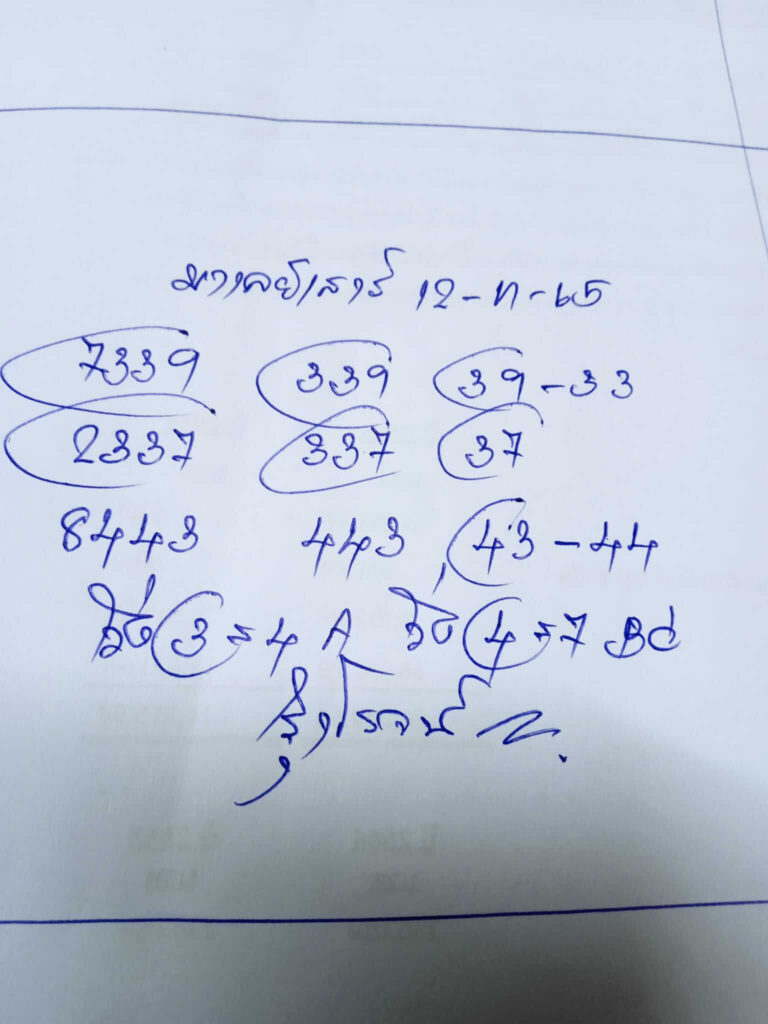 มาเลย์เสาร์ 12-ก-65
7339 339 39-33
2337 337 37
8443 443 43-44
3=4 A 4=7 BC